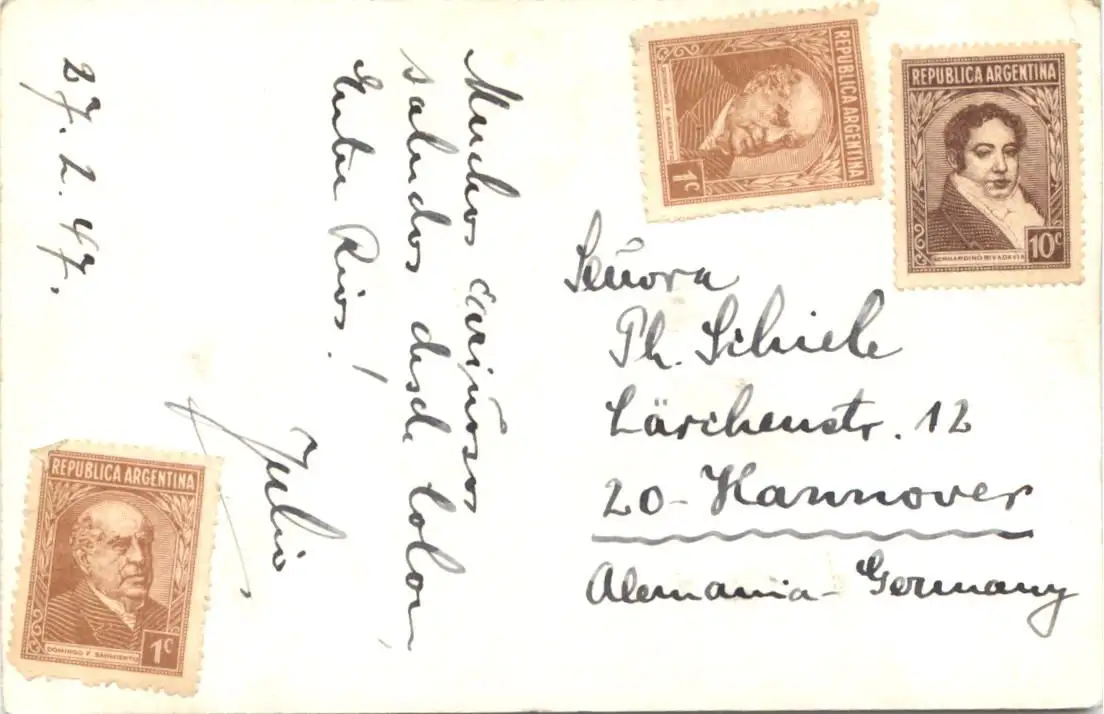 27. 2. 47.
Muchos cariñosos
saludos desde Colón
Entre Rios!
Julio
Señora
Ph. Schiele
Lärchenstr. 12
20-Hannover
Alemania-Germany
REPUBLICA ARGENTINA
1c
REPUBLICA ARGENTINA
BERNARDINO RIVADAVIA
10c
REPUBLICA ARGENTINA
DOMINGO F SARMIENTO
1c